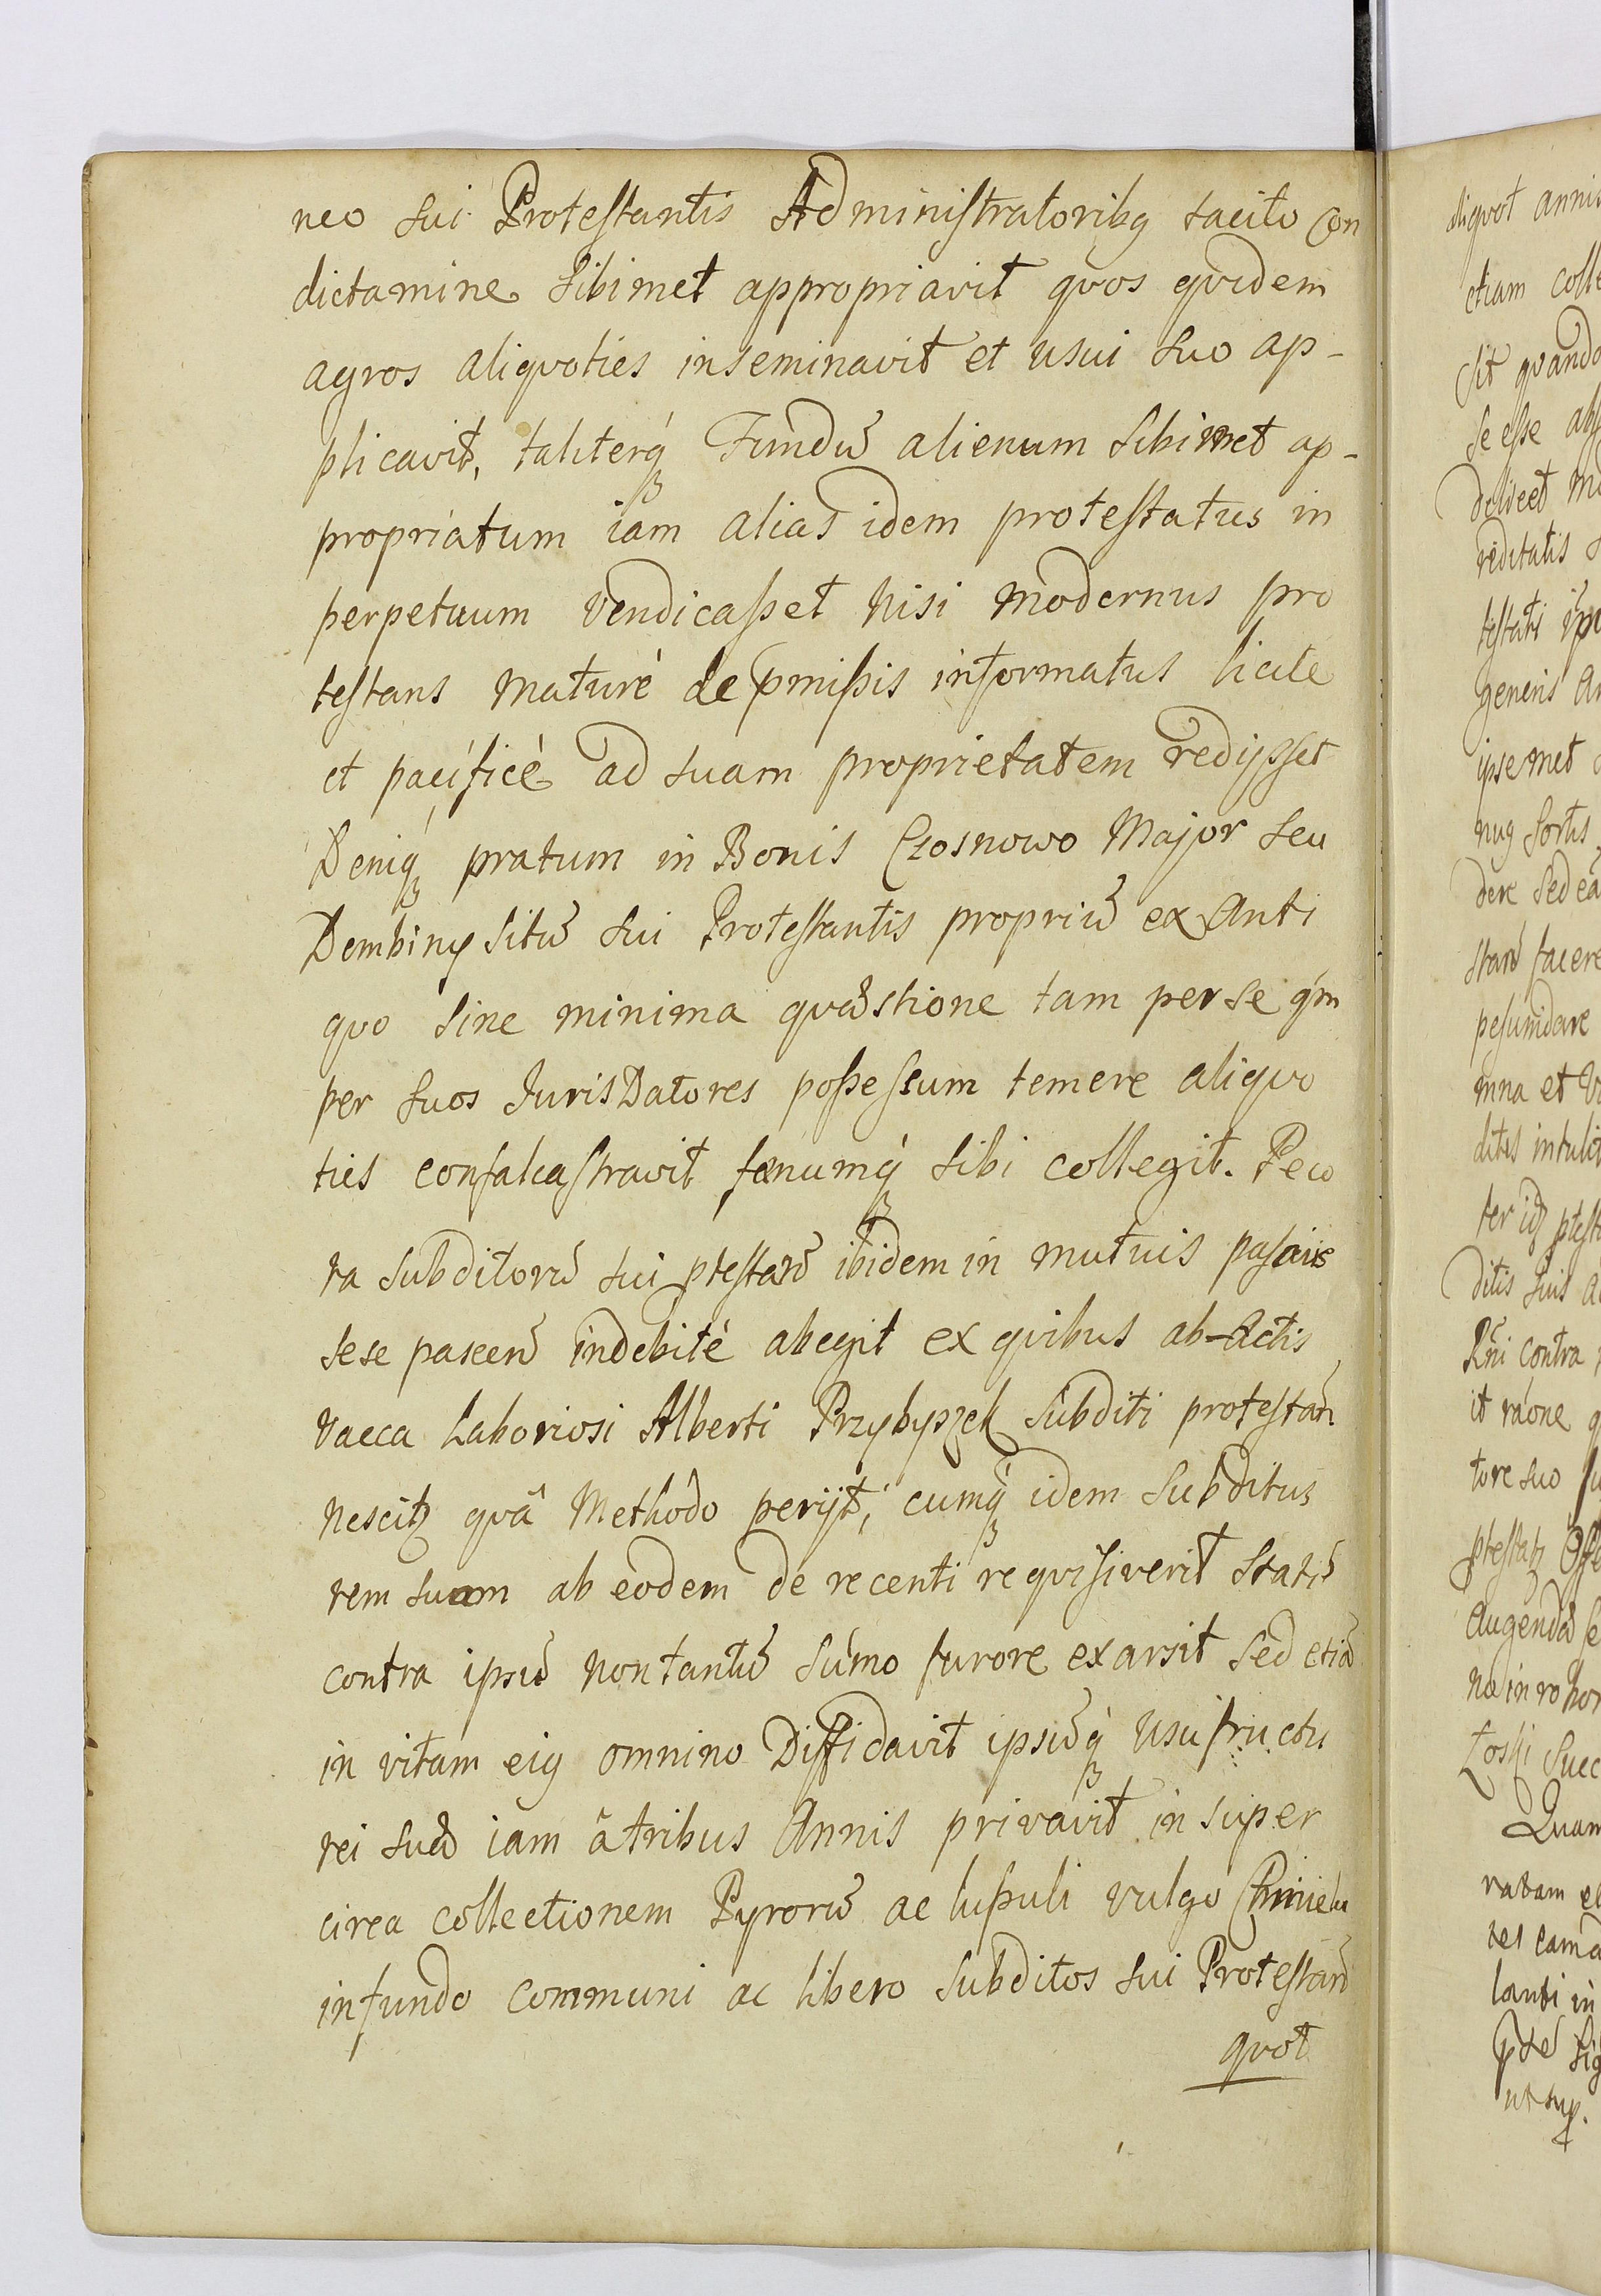 neo sui Protestantis Administratoribq tacito Con
dictamine sibimet appropriavit qvos qvidem
agros aliqvoties inseminavit et usui suo ap-
plicavit, taliterq́ Fundū alienum sibimet ap-
propriatum iam alias idem protestatus in
perpetuum vendicasset nisi modernus pro
testans maturè de pmissis informatus licite
et pacificè ad suam proprietatem redijsset
Deniq́ pratum in Bonis Czosnowo Major seu
Dembiny sitū sui Protestantis propriū ex Anti
qvo sine minima qvæstione tam per se qm̄
per suos Juris Datores possessum temere aliqvo
ties confalcastravit fænumq́ sibi collegit. Peco
ra Subditorū sui ptestan̄ ibidem in mutuis pascuis
sese pascen̄ indebitè abegit ex qvibus ab-Actis
vacca Laboriosi Alberti Przybyszek Subditi protestan̄
nescitz qvâ Methodo perijt, cumq́ idem Subditus
rem suam ab eodem de recenti reqvisiverit Statī
contra ipsū non tantū sum̄o furore exarsit sed etiā
in vitam eiq omnino Diffidavit ipsūq́ usufructu
rei suæ iam â tribus Annis privavit insuper
circa collectionem Pyrorū ac lupuli vulgo Chmielu
in fundo communi ac libero Subditos sui Protestan̄
qvot
diqvot annis
etiam colle
sit qvando
se esse abs
reditatis
testati
generis
ipsemet
nuq sortis
dere sed eā
stan̄ facere
pesumdare
mna et
ditis intulit
ditis suis
Rn̄i contra
it rāone
tore suo
Augendā
Quam
ratam
lanti in
ut sup.